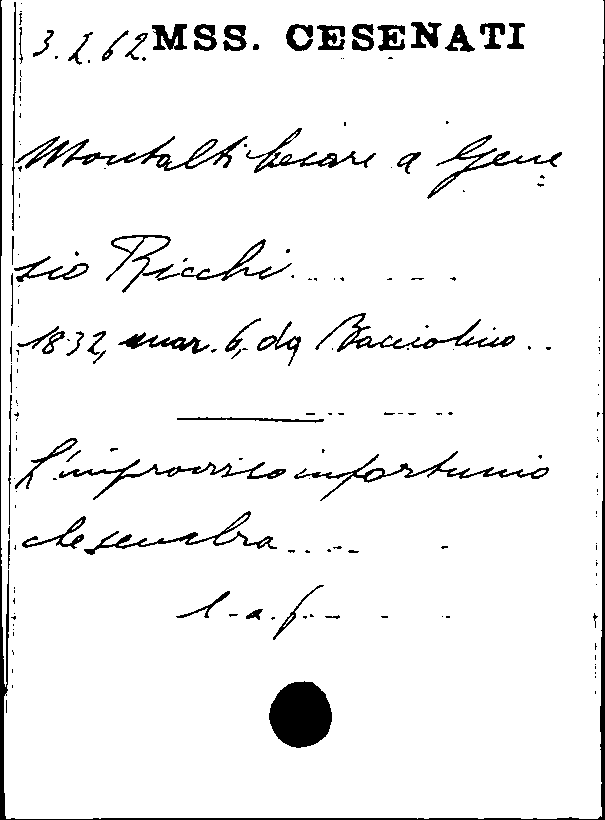 3.I.62. MSS. CESENATI
Montalti Cesare a Gene
sio Ricchi
1832, mar. 6, da Bacciolino
L'improvviso infortunio
che sembra
l. a. f.